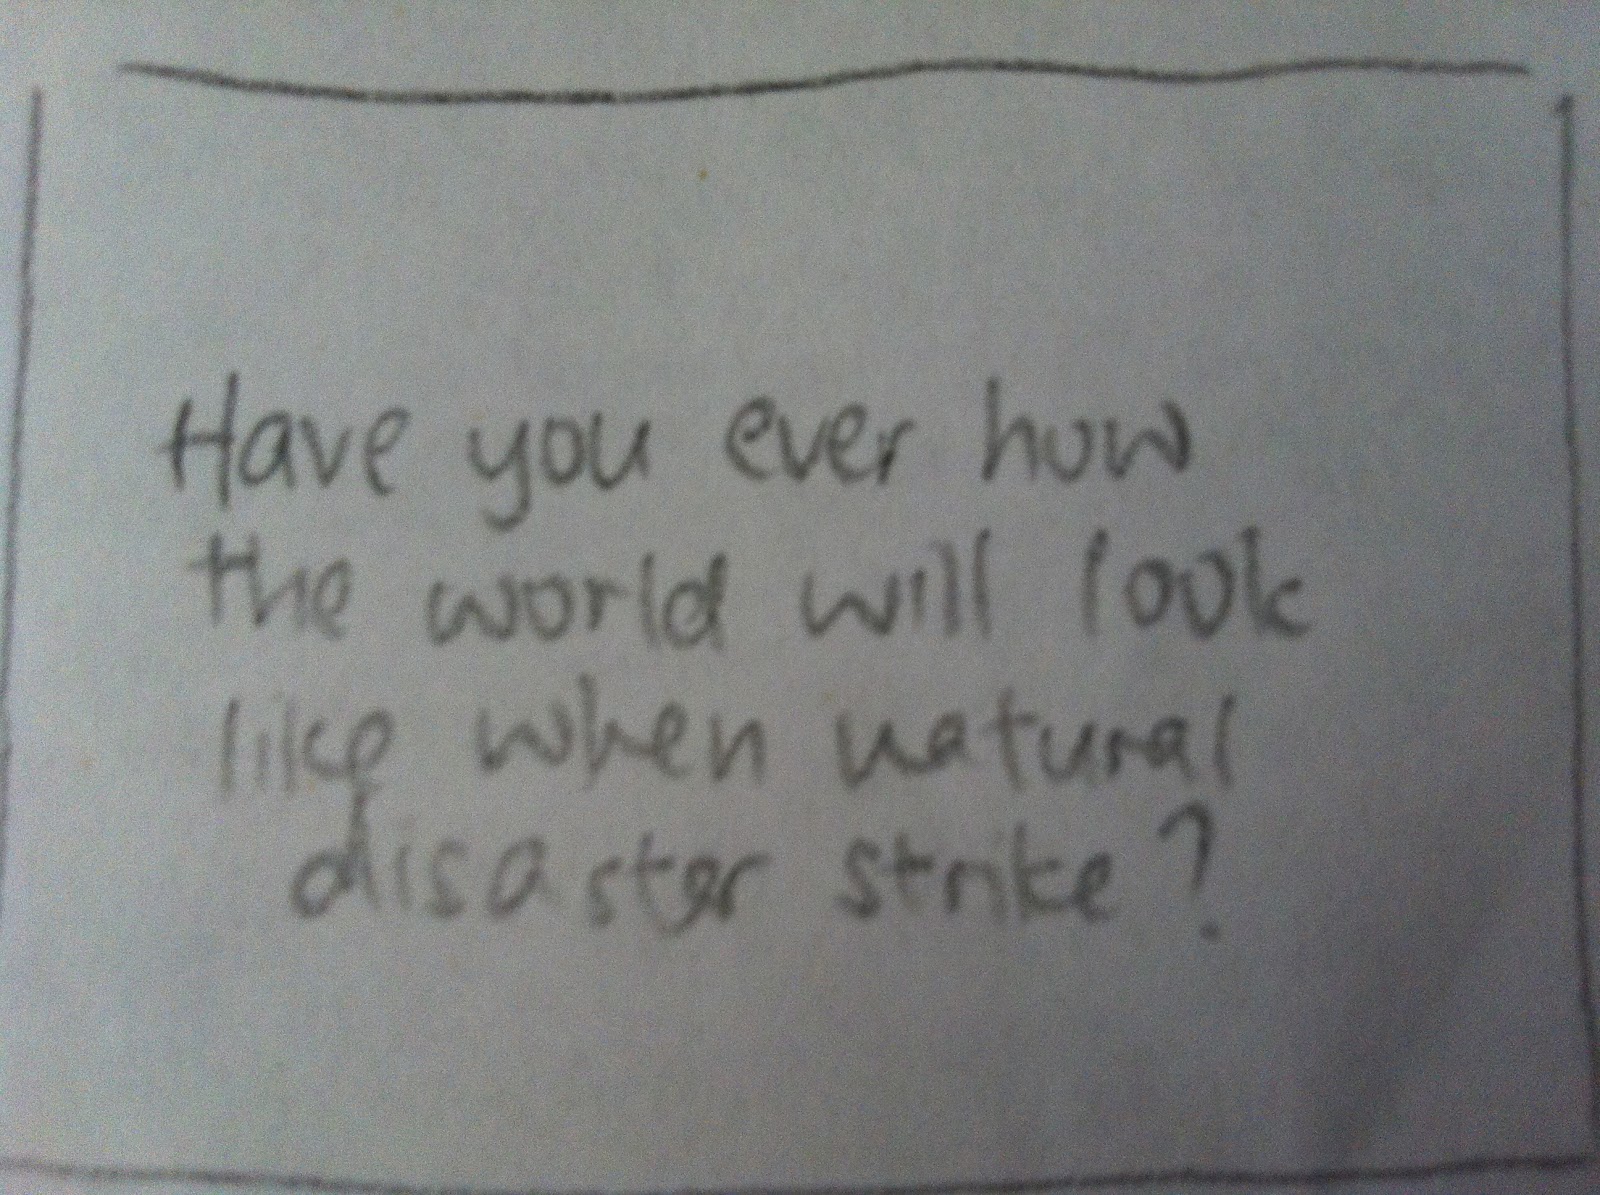 Have you ever how
the world will look
like when natural
disaster strike?